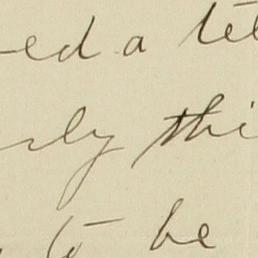 ed a te
ly thi
to be